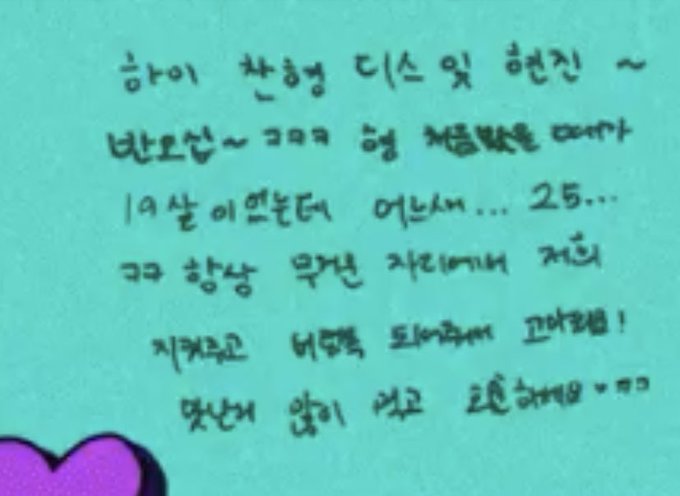 하이 찬형 디스 잇 현진 ~
반오십~ ㅋㅋㅋ 형 처음봤을 때가
19살이었는데 어느새... 25...
ㅋㅋ 항상 무거운 자리에서 저희
지켜주고 버팀목 되어주어서 고마워요!
맛난거 많이 먹고